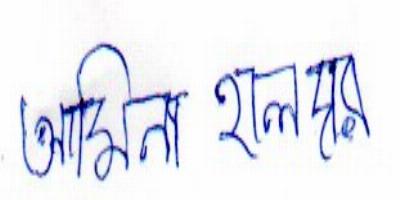 আমিনা হালদার